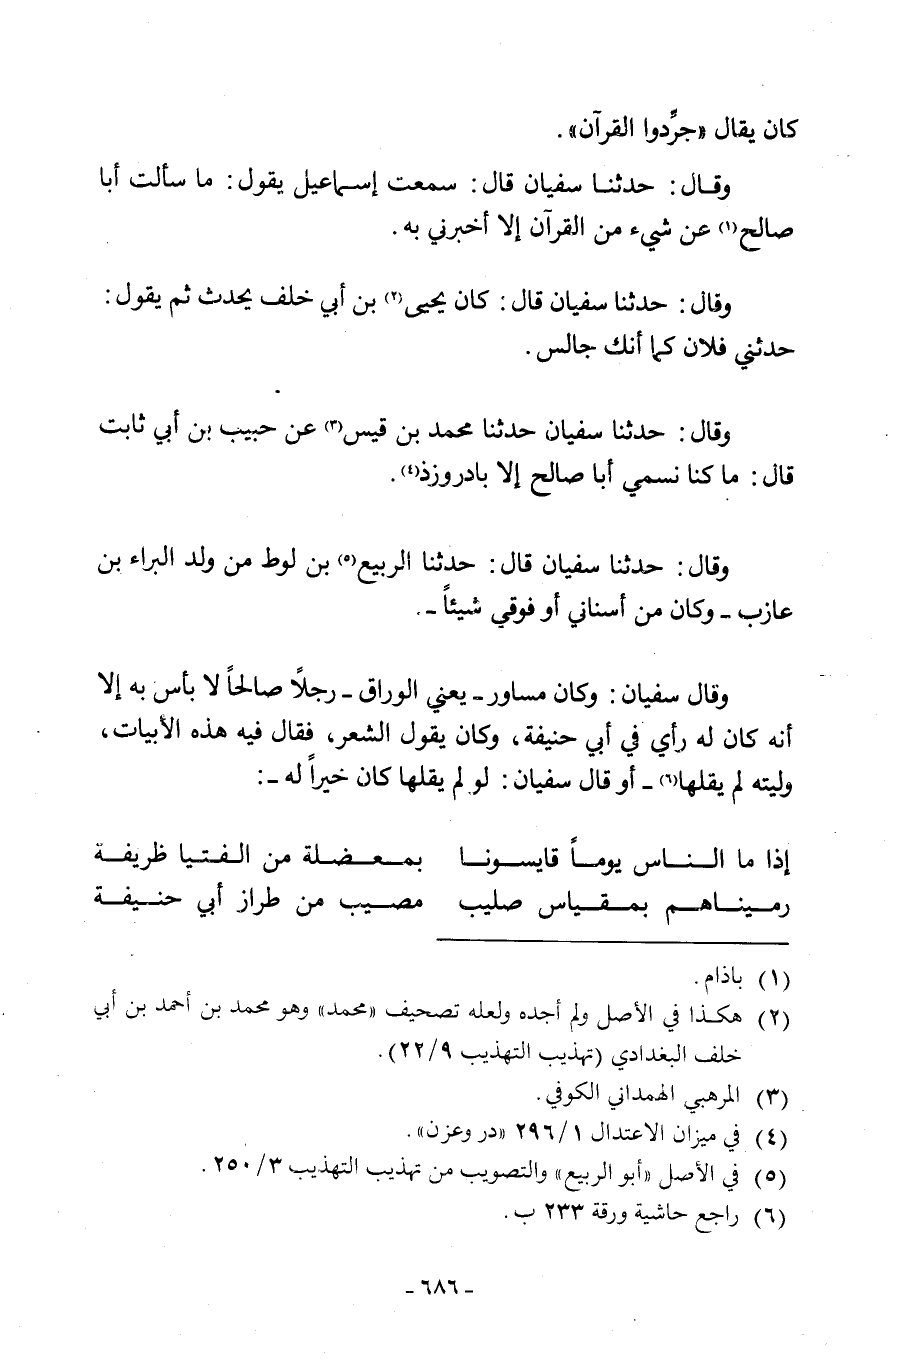 كان يقال «جرِّدوا القرآن».
وقال: حدثنا سفيان قال: سمعت إسماعيل يقول: ما سألت أبا
صالح(١) عن شيء من القرآن إلا أخبرني به.
وقال: حدثنا سفيان قال: كان يحيى(٢) بن أبي خلف يحدث ثم يقول:
حدثني فلان كما أنك جالس.
وقال: حدثنا سفيان حدثنا محمد بن قيس(٣) عن حبيب بن أبي ثابت
قال: ما كنا نسمي أبا صالح إلا بادروزذ(٤).
وقال: حدثنا سفيان قال: حدثنا الربيع(٥) بن لوط من ولد البراء بن
عازب ـ وكان من أسناني أو فوقي شيئاً ـ.
وقال سفيان: وكان مساور ـ يعني الوراق ـ رجلاً صالحاً لا بأس به إلا
أنه كان له رأي في أبي حنيفة، وكان يقول الشعر، فقال فيه هذه الأبيات،
وليته لم يقلها(٦) ـ أو قال سفيان: لو لم يقلها كان خيراً له ـ:
إذا ما النـاس يوماً قايسونا بمعضلة من الفتيا ظريفة
رميناهم بمقياس صليب مصيب من طراز أبي حنيفة
(١) باذام.
(٢) هكذا في الأصل ولم أجده ولعله تصحيف «محمد» وهو محمد بن أحمد بن أبي
خلف البغدادي (تهذيب التهذيب ٢٢/٩).
(٣) المرهبي الهمداني الكوفي.
(٤) في ميزان الاعتدال ٢٩٦/١ «در وعزن».
(٥) في الأصل «أبو الربيع» والتصويب من تهذيب التهذيب ٢٥٠/٣.
(٦) راجع حاشية ورقة ٢٣٣ ب.
ـ ٦٨٦ ـ